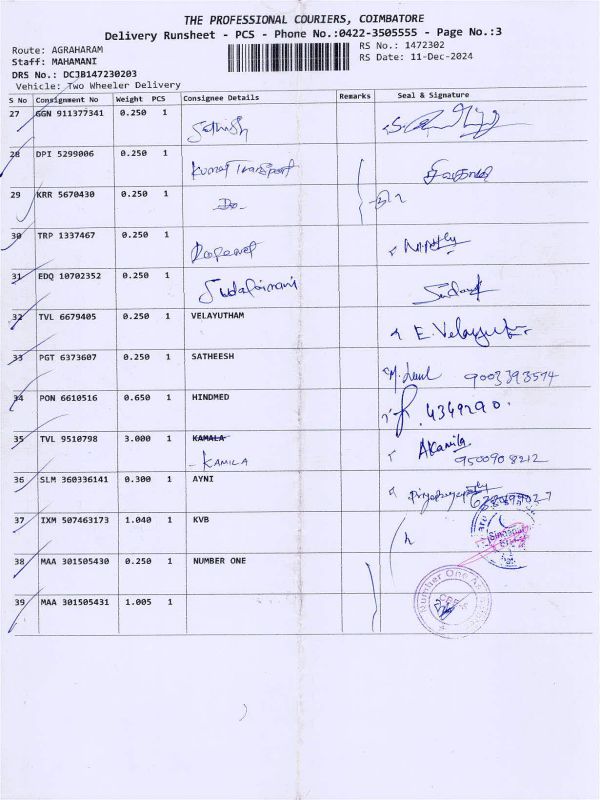 THE PROFESSIONAL COURIERS, COIMBATORE
Delivery Runsheet - PCS - Phone No.:0422-3505555 - Page No.:3
Route: AGRAHARAM
RS No.: 1472302
Staff: MAHAMANI
RS Date: 11-Dec-2024
DRS No.: DCJB147230203
Vehicle: Two Wheeler Delivery
S No Consignment No Weight PCS Consignee Details Remarks Seal & Signature
27 GGN 911377341 0.250 1 Sathish
28 DPI 5299006 0.250 1 Kumar Transport
29 KRR 5670430 0.250 1 Do
30 TRP 1337467 0.250 1
31 EDQ 10702352 0.250 1
32 TVL 6679405 0.250 1 VELAYUTHAM E. Velayutham
33 PGT 6373607 0.250 1 SATHEESH 9003393574
34 PON 6610516 0.650 1 HINDMED 4349290.
35 TVL 9510798 3.000 1 KAMALA AKamila
- KAMILA 9500908212
36 SLM 360336141 0.300 1 AYNI
37 IXM 507463173 1.040 1 KVB
38 MAA 301505430 0.250 1 NUMBER ONE
39 MAA 301505431 1.005 1
Number One